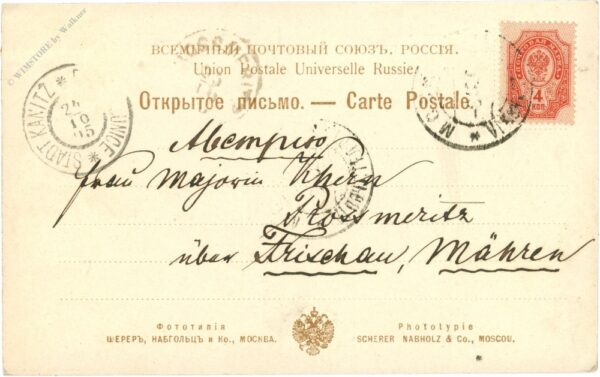 © WIMSTORE by Walkner
ВСЕМІРНЫЙ ПОЧТОВЫЙ СОЮЗЪ. РОССІЯ.
Union Postale Universelle Russie.
Открытое письмо. — Carte Postale.
4
КОП.
STADT KANITZ
24
10
05
МОСКВА
Австрію
Frau Majorin Khern
Prossmeritz
über Frischau, Mähren
Фототипія
ШЕРЕРЪ, НАБГОЛЬЦЪ и Ко., МОСКВА.
Phototypie
SCHERER NABHOLZ & Co., MOSCOU.